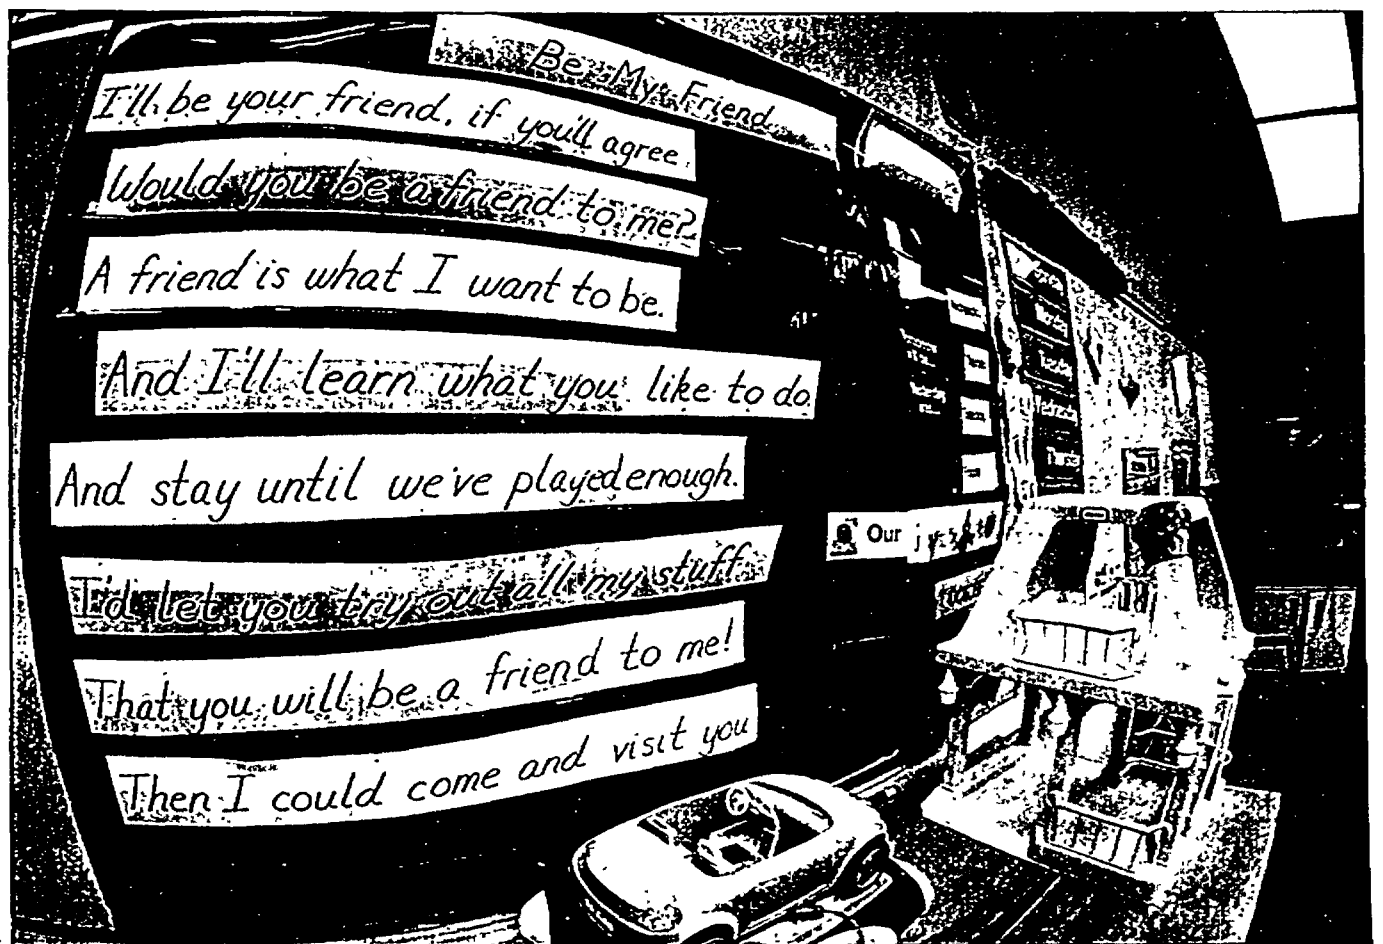 Be My Friend
I'll be your friend, if you'll agree.
Would you be a friend to me?
A friend is what I want to be.
And I'll learn what you like to do.
And stay until we've played enough.
I'd let you try out all my stuff.
That you will be a friend to me!
Then I could come and visit you
Our